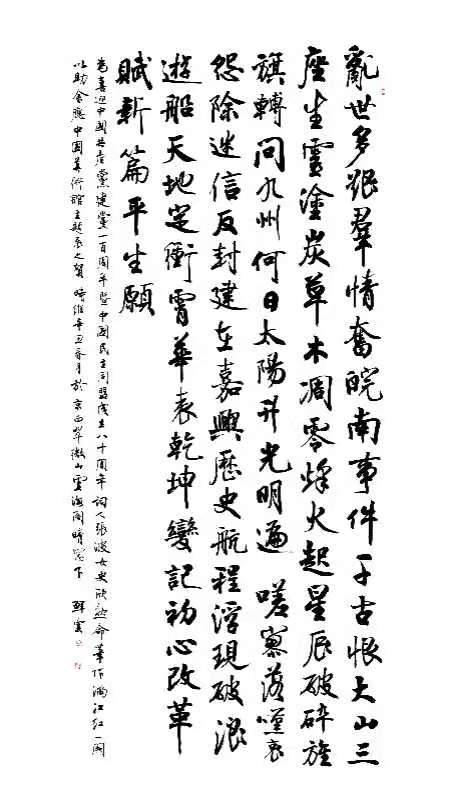 亂世多艱羣情奮皖南事件千古恨大山三
座生靈塗炭草木凋零烽火起星辰破碎旌
旗轉問九州何日太陽升光明遍 嗟落哀
怨除迷信反封建在嘉興歷史航程浮現破浪
遊船天地定衝霄華表乾坤變記初心改革
賦新篇平生願
為喜迎中國共產黨建黨一百周年暨中國民主同盟成立八十周年詞人張波女史欣然命筆作滿江紅一闋
以助余應中國美術館主題展之賀 時維辛丑春月於京西翠微山雲海閣晴窗下